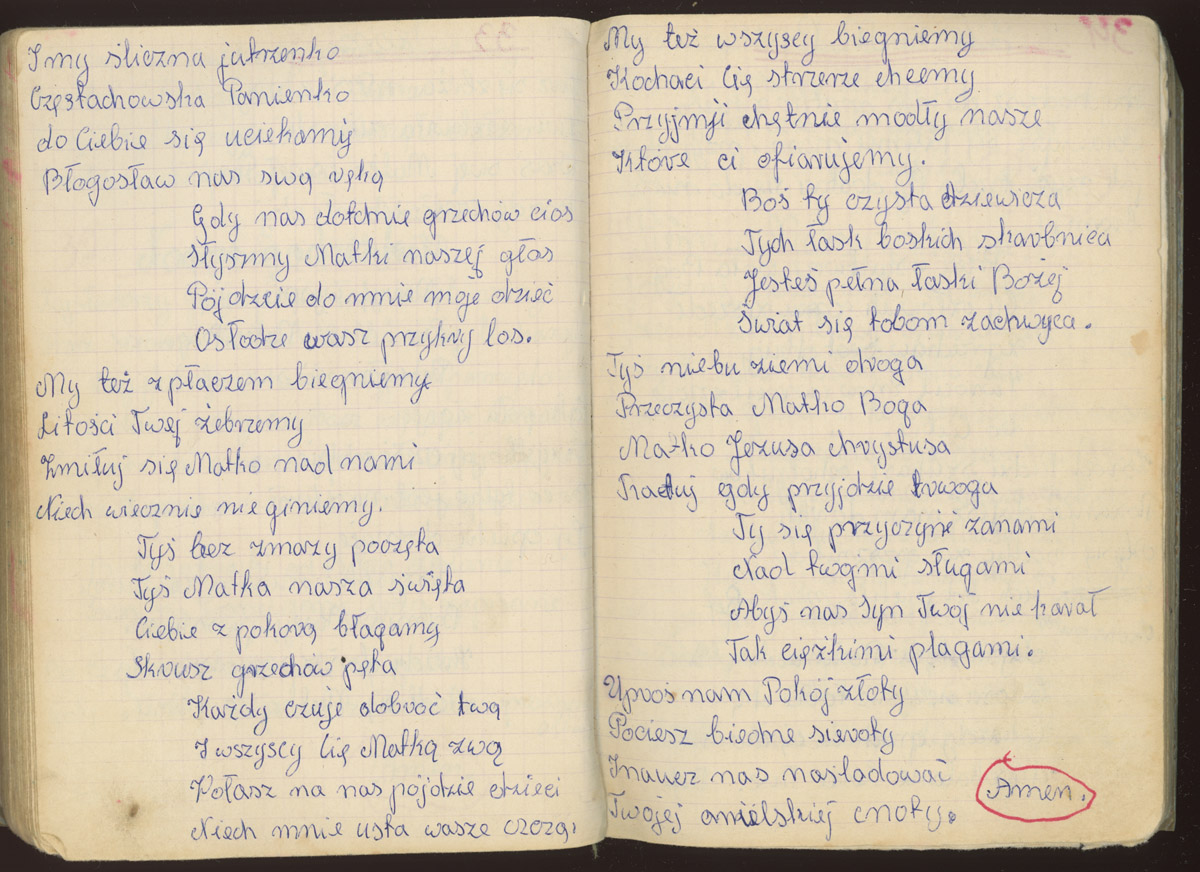 I my śliczna jutrzenko
Częstachowska Panienko
do Ciebie się uciekamy
Błogosław nas swą ręką
Gdy nas dotchnie grzechów cios
Słyszmy Matki naszej głos
Pójdzcie do mnie moje dzieć
Osłodze wasz przykry los.
My też z płaczem biegniemy
Litości Twej żebrzemy
Zmiłuj się Matko nad nami
Niech wiecznie nie giniemy.
Tyś bez zmazy poczęta
Tyś Matka nasza święta
Ciebie z pokorą błagamy
Skrusz grzechów pęta
Każdy czuje dobroć twą
I wszyscy Cię Matką zwą
Wołasz na nas pójdzie dzieci
Niech mnie usta wasze czczą,
33
34
My też wszyscy biegniemy
Kochaci Cię strzerze chcemy
Przyjmji chętnie modły nasze
Które ci ofiarujemy.
Boś ty czysta dziewicza
Tych łask boskich skarbnica
Jesteś pełna łaski Bożej
Świat się tobom zachwyca.
Tyś niebu ziemi droga
Przeczysta Matko Boga
Matko Jezusa chrystusa
Ratuj gdy przyjdzie trwoga
Ty się przyczyń zanami
Nad twojmi sługami
Abyś nas Syn Twój nie karał
Tak ciężkimi plagami.
Uproś nam Pokój złoty
Pociesz biedne sieroty
Inaucz nas naśladować
Twojej anielskiej cnoty.
Amen.